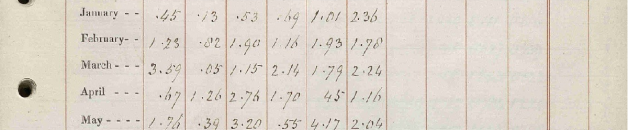 January - - .45 .13 .53 .69 1.01 2.36
February- - 1.23 .02 1.90 1.16 1.93 1.78
March - - - 3.59 .05 1.15 2.14 1.79 2.24
April - - - .67 1.26 2.76 1.70 45 1.16
May - - - - 1.76 .39 3.20 .55 4.17 2.04